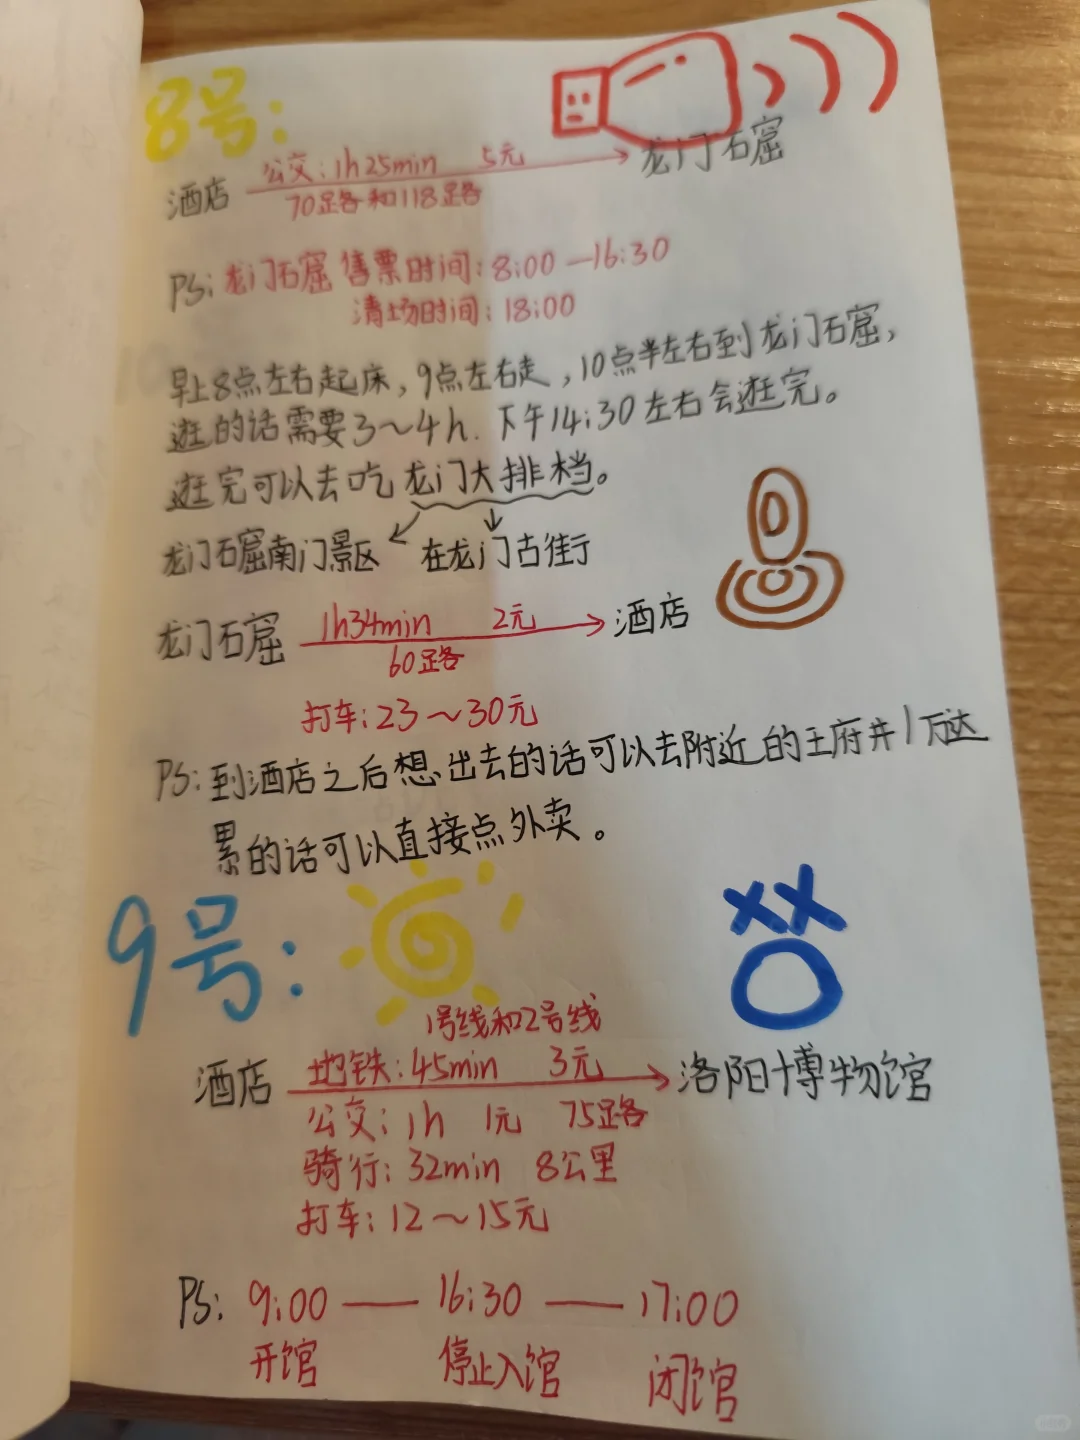 8号:
酒店 公交:1h25min 5元 龙门石窟
70路和118路
PS:龙门石窟 售票时间:8:00—16:30
清场时间:18:00
早上8点左右起床,9点左右走,10点半左右到龙门石窟,
逛的话需要3~4h.下午14:30左右会逛完。
逛完可以去吃龙门大排档。
龙门石窟南门景区 在龙门古街
龙门石窟 1h34min 2元 酒店
60路
打车:23~30元
PS:到酒店之后想出去的话可以去附近的王府井/万达
累的话可以直接点外卖。
9号:
1号线和2号线
酒店 地铁:45min 3元 洛阳博物馆
公交:1h 1元 75路
骑行:32min 8公里
打车:12~15元
PS: 9:00 — 16:30 — 17:00
开馆 停止入馆 闭馆